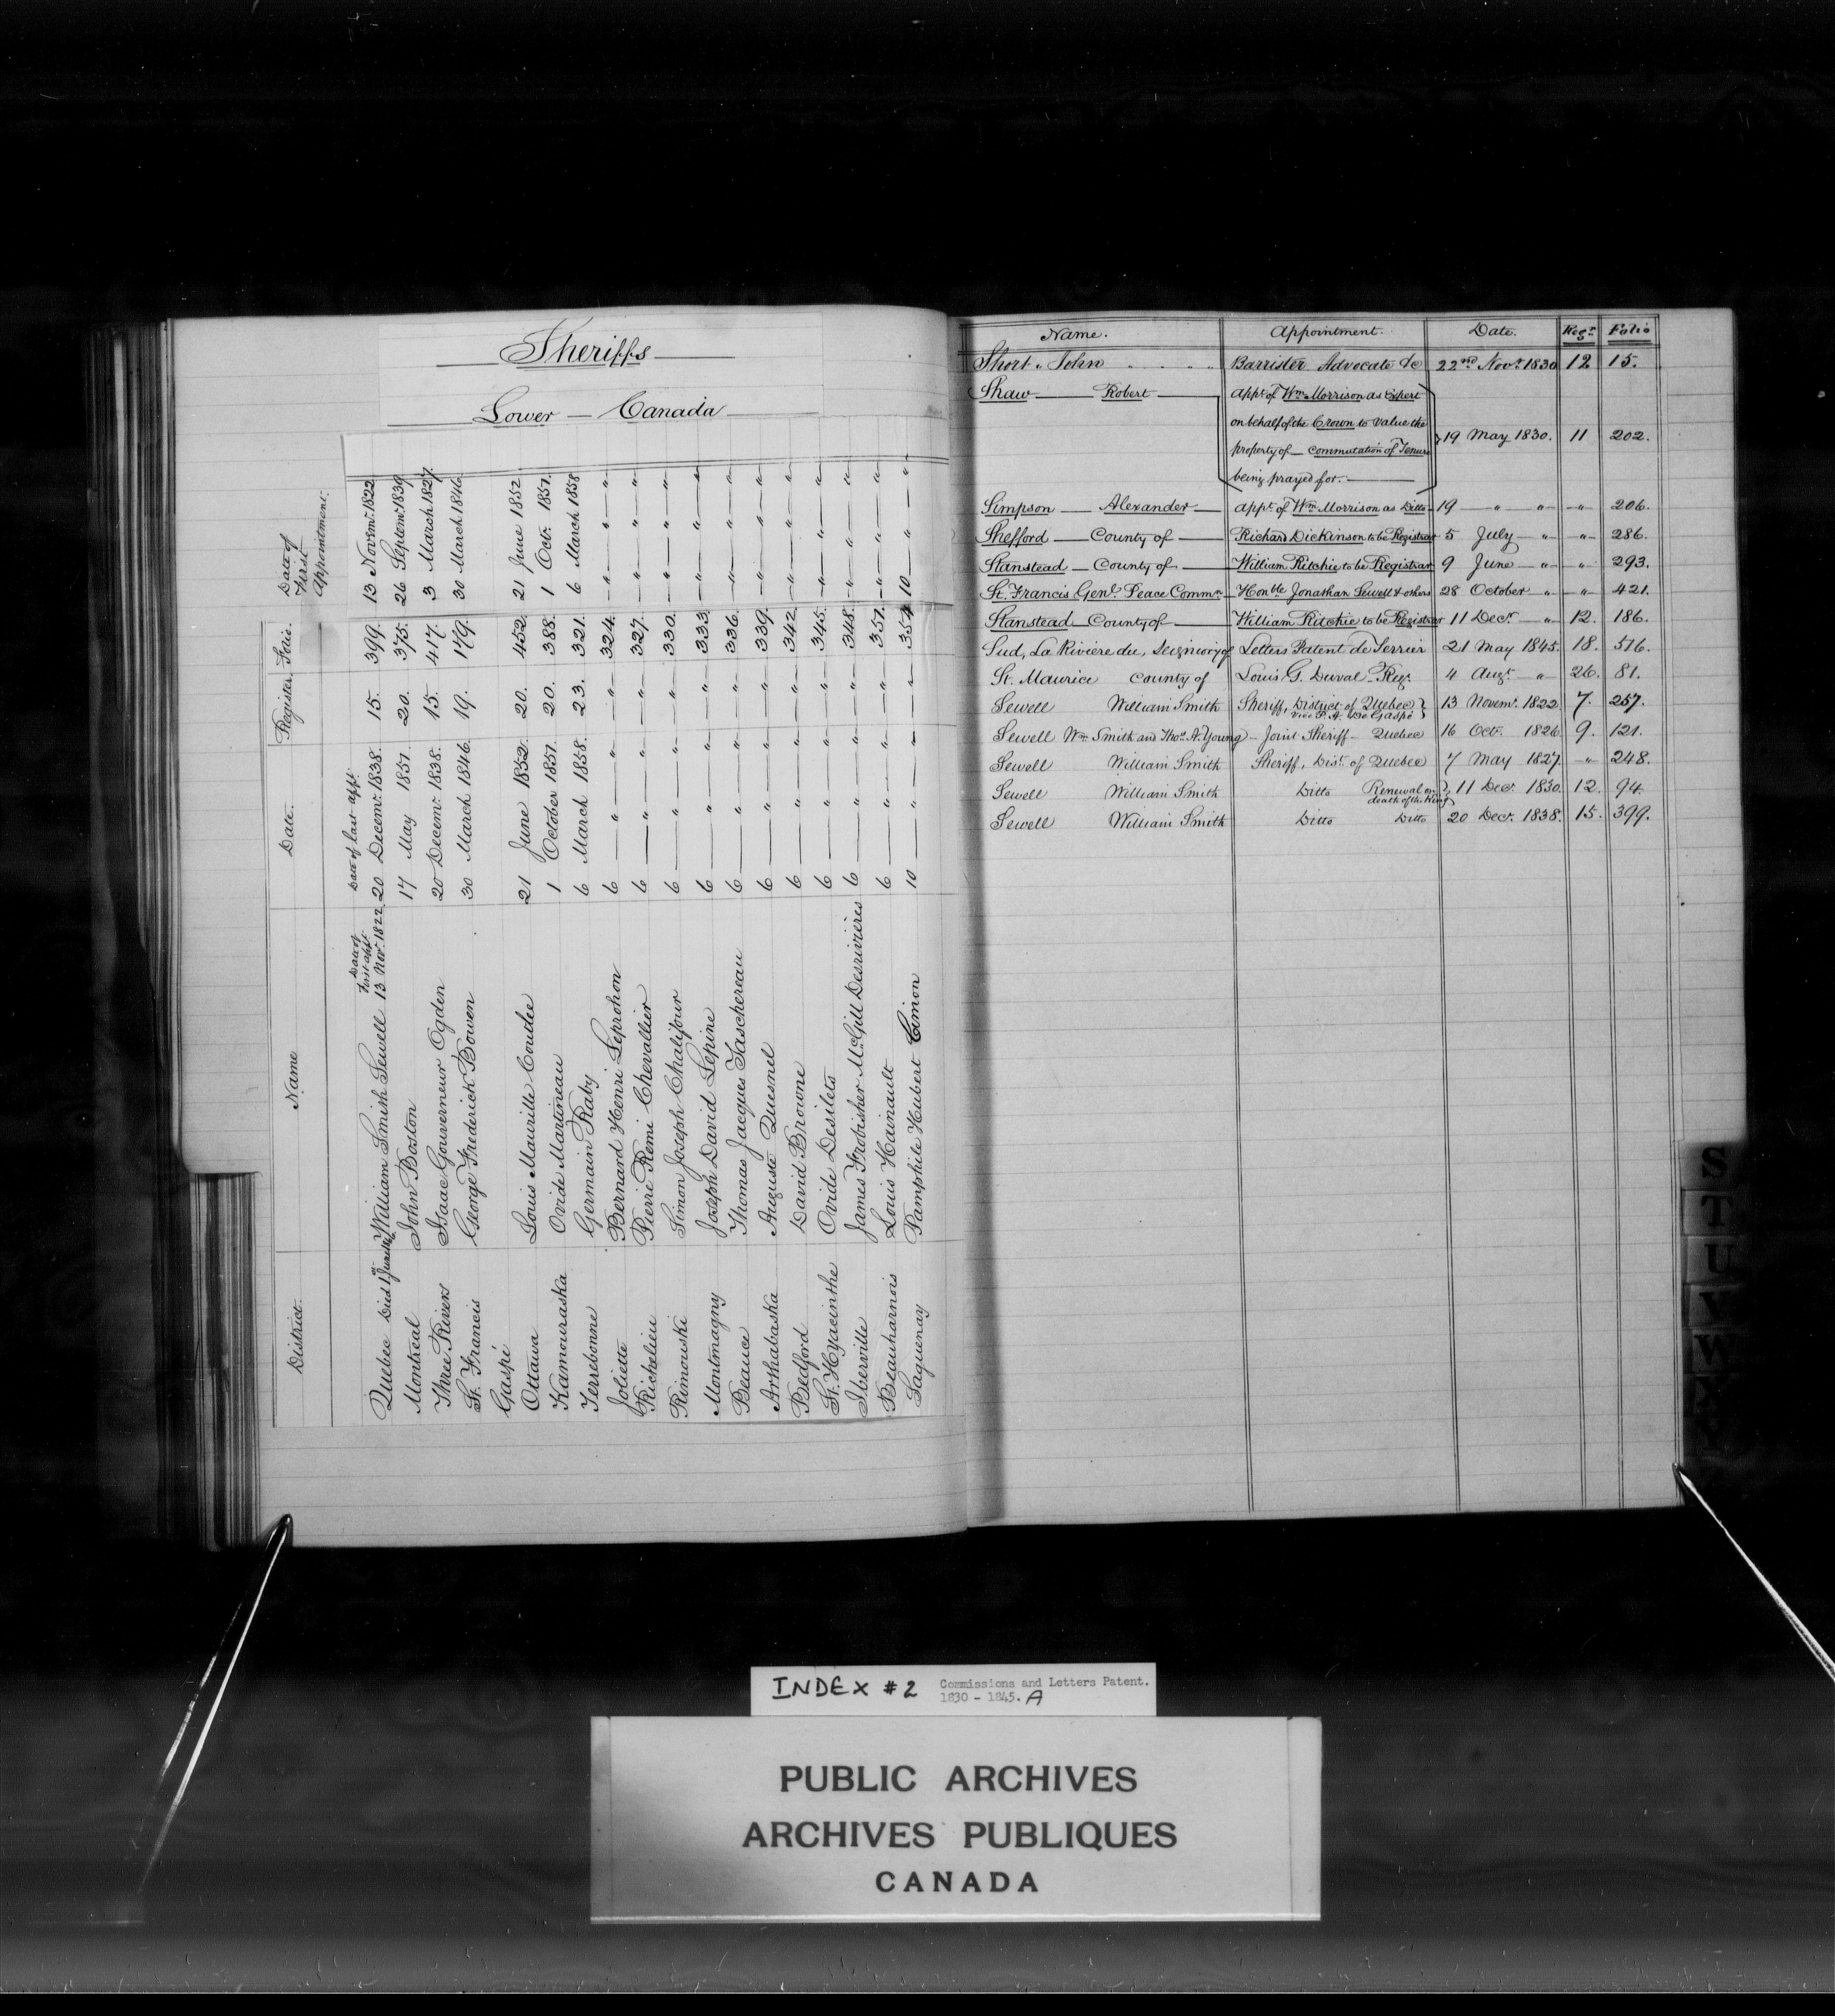 Sheriffs
Lower — Canada
District. Name Date. Register. Folio. Date of First Appointment.
Date of first appt. Date of last appt.
Quebec Died 1st June William Smith Sewell 13 Novr. 1822. 20 Decemr. 1838. 15. 399. 13 Novemr. 1822
Montreal John Boston 17 May 1851. 20. 375. 26 Septemr. 1839
Three Rivers Isaac Gouverneur Ogden 20 Decemr. 1838. 15. 417. 3 March 1827.
St. Francis George Frederick Bowen 30 March 1846. 19. 179. 30 March 1846
Gaspé
Ottawa Louis Maurille Coutlee 21 June 1852. 20. 452. 21 June 1852
Kamouraska Ovide Martineau 1 October 1857. 20. 388. 1 Octr. 1857.
Terrebonne Germain Raby 6 March 1858. 23. 321. 6 March 1858
Joliette Bernard Henri Leprohon 6 — " — " — 324. — " — "
Richelieu Pierre Remi Chevallier 6 — " — " — 327. — " — "
Rimouski Simon Joseph Chalifour 6 — " — " — 330. — " — "
Montmagny Joseph David Lepine 6 — " — " — 333. — " — "
Beauce Thomas Jacques Taschereau 6 — " — " — 336. — " — "
Arthabaska Auguste Quesnel 6 — " — " — 339. — " — "
Bedford David Browne 6 — " — " — 342. — " — "
St. Hyacinthe Ovide Desilets 6 — " — " — 345. — " — "
Iberville James Frobisher McGill Desrivières 6 — " — " — 348. — " — "
Beauharnois Louis Hainault 6 — " — " — 351. — " — "
Saguenay Pamphile Hubert Cimon 10 — " — " — 354 10 — " — "
Name. Appointment. Date. Regr. Folio
Short " John Barrister Advocate &c 22nd Novr. 1830 12 15.
Shaw — Robert — Appt. of Wm. Morrison as Expert
on behalf of the Crown to value the
property of — commutation of Tenure 19 May 1830. 11 202.
being prayed for. —
Simpson — Alexander — Appt. of Wm. Morrison as Ditto 19 — " — " — " — 206.
Shefford — County of — Richard Dickinson to be Registrar 5 July — " — " — 286.
Stanstead — County of — William Ritchie to be Registrar 9 June — " — " — 293.
St. Francis Genl. Peace Commn. — Honble Jonathan Sewell & others 28 October " — " — 421.
Stanstead — County of — William Ritchie to be Registrar 11 Decr. — " 12. 186.
Sud, La Rivière du, Seigniory of Letters Patent de Terrier 21 May 1845. 18. 516.
St. Maurice County of Louis G. Duval — Regr. 4 Augt. — " — 26. 81.
Sewell William Smith Sheriff, District of Quebec 13 Novemr. 1822. 7. 257.
vice P. A. De Gaspé
Sewell Wm. Smith and Thos. A. Young — Joint Sheriff — Quebec 16 Octr. 1826. 9. 121.
Sewell William Smith Sheriff, Dist. of Quebec 7 May 1827. — " — 248.
Sewell William Smith Ditto Renewal on death of the King 11 Decr. 1830. 12. 94.
Sewell William Smith Ditto Ditto 20 Decr. 1838. 15. 399.
S
T
U
V
W
X
Y
INDEX # 2 Commissions and Letters Patent.
1830 - 1845. A
PUBLIC ARCHIVES
ARCHIVES PUBLIQUES
CANADA